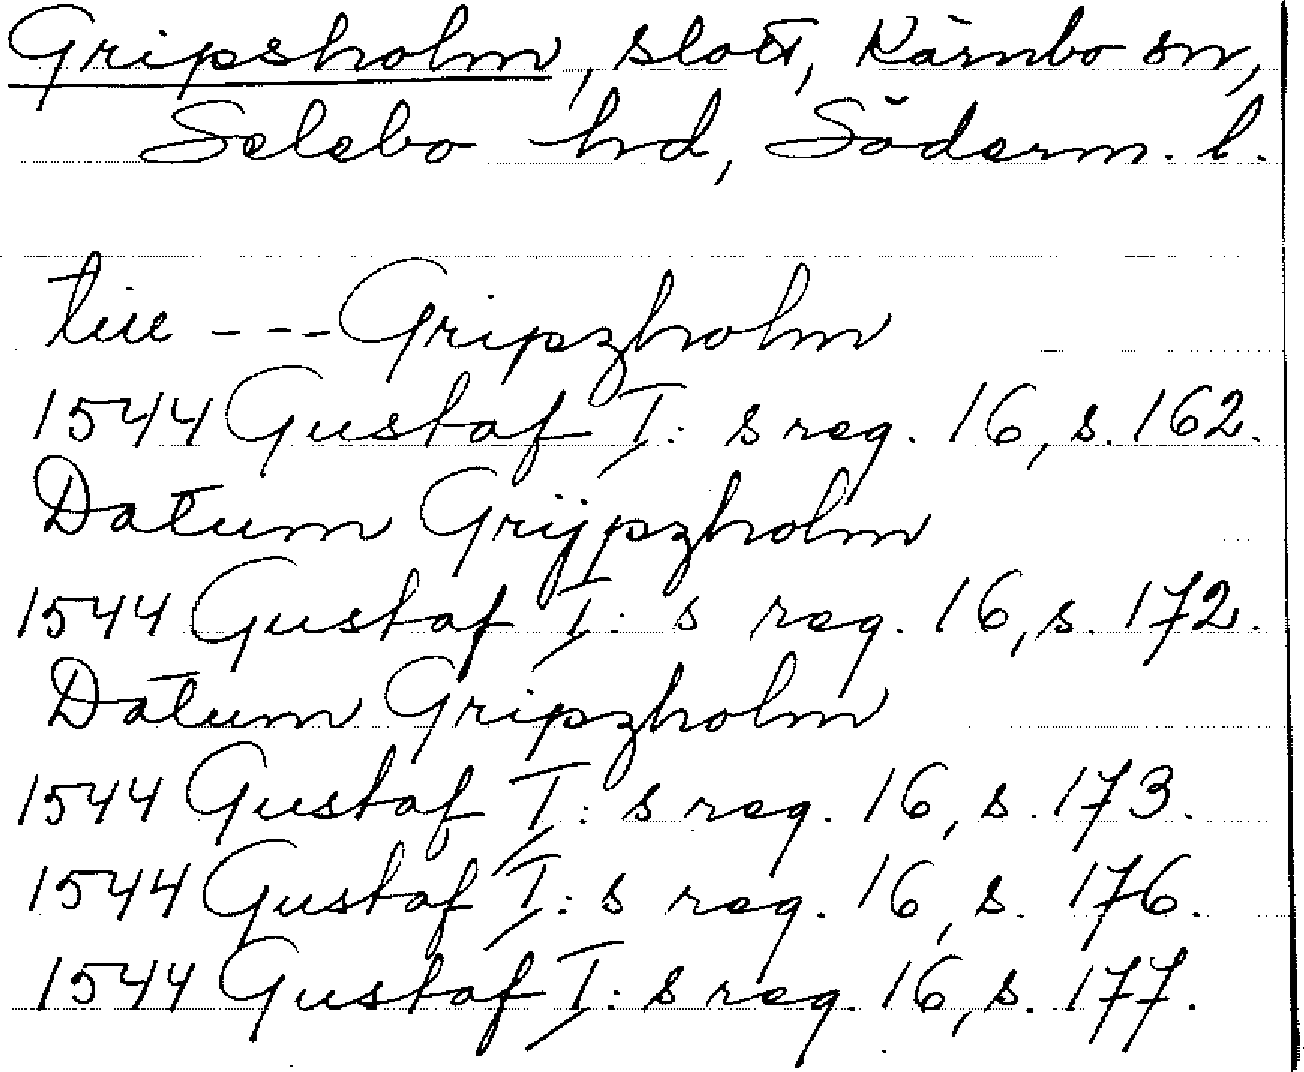 Gripsholm, slott, Kärnbo sn,
Selebo hd, Söderm. l.
till --- Gripzholm
1544 Gustaf I: s reg. 16, s. 162.
Datum Grijpzholm
1544 Gustaf I: s reg. 16, s. 172.
Datum Gripzholm
1544 Gustaf I: s reg. 16, s. 173.
1544 Gustaf I: s reg. 16, s. 176.
1544 Gustaf I: s reg. 16, s. 177.